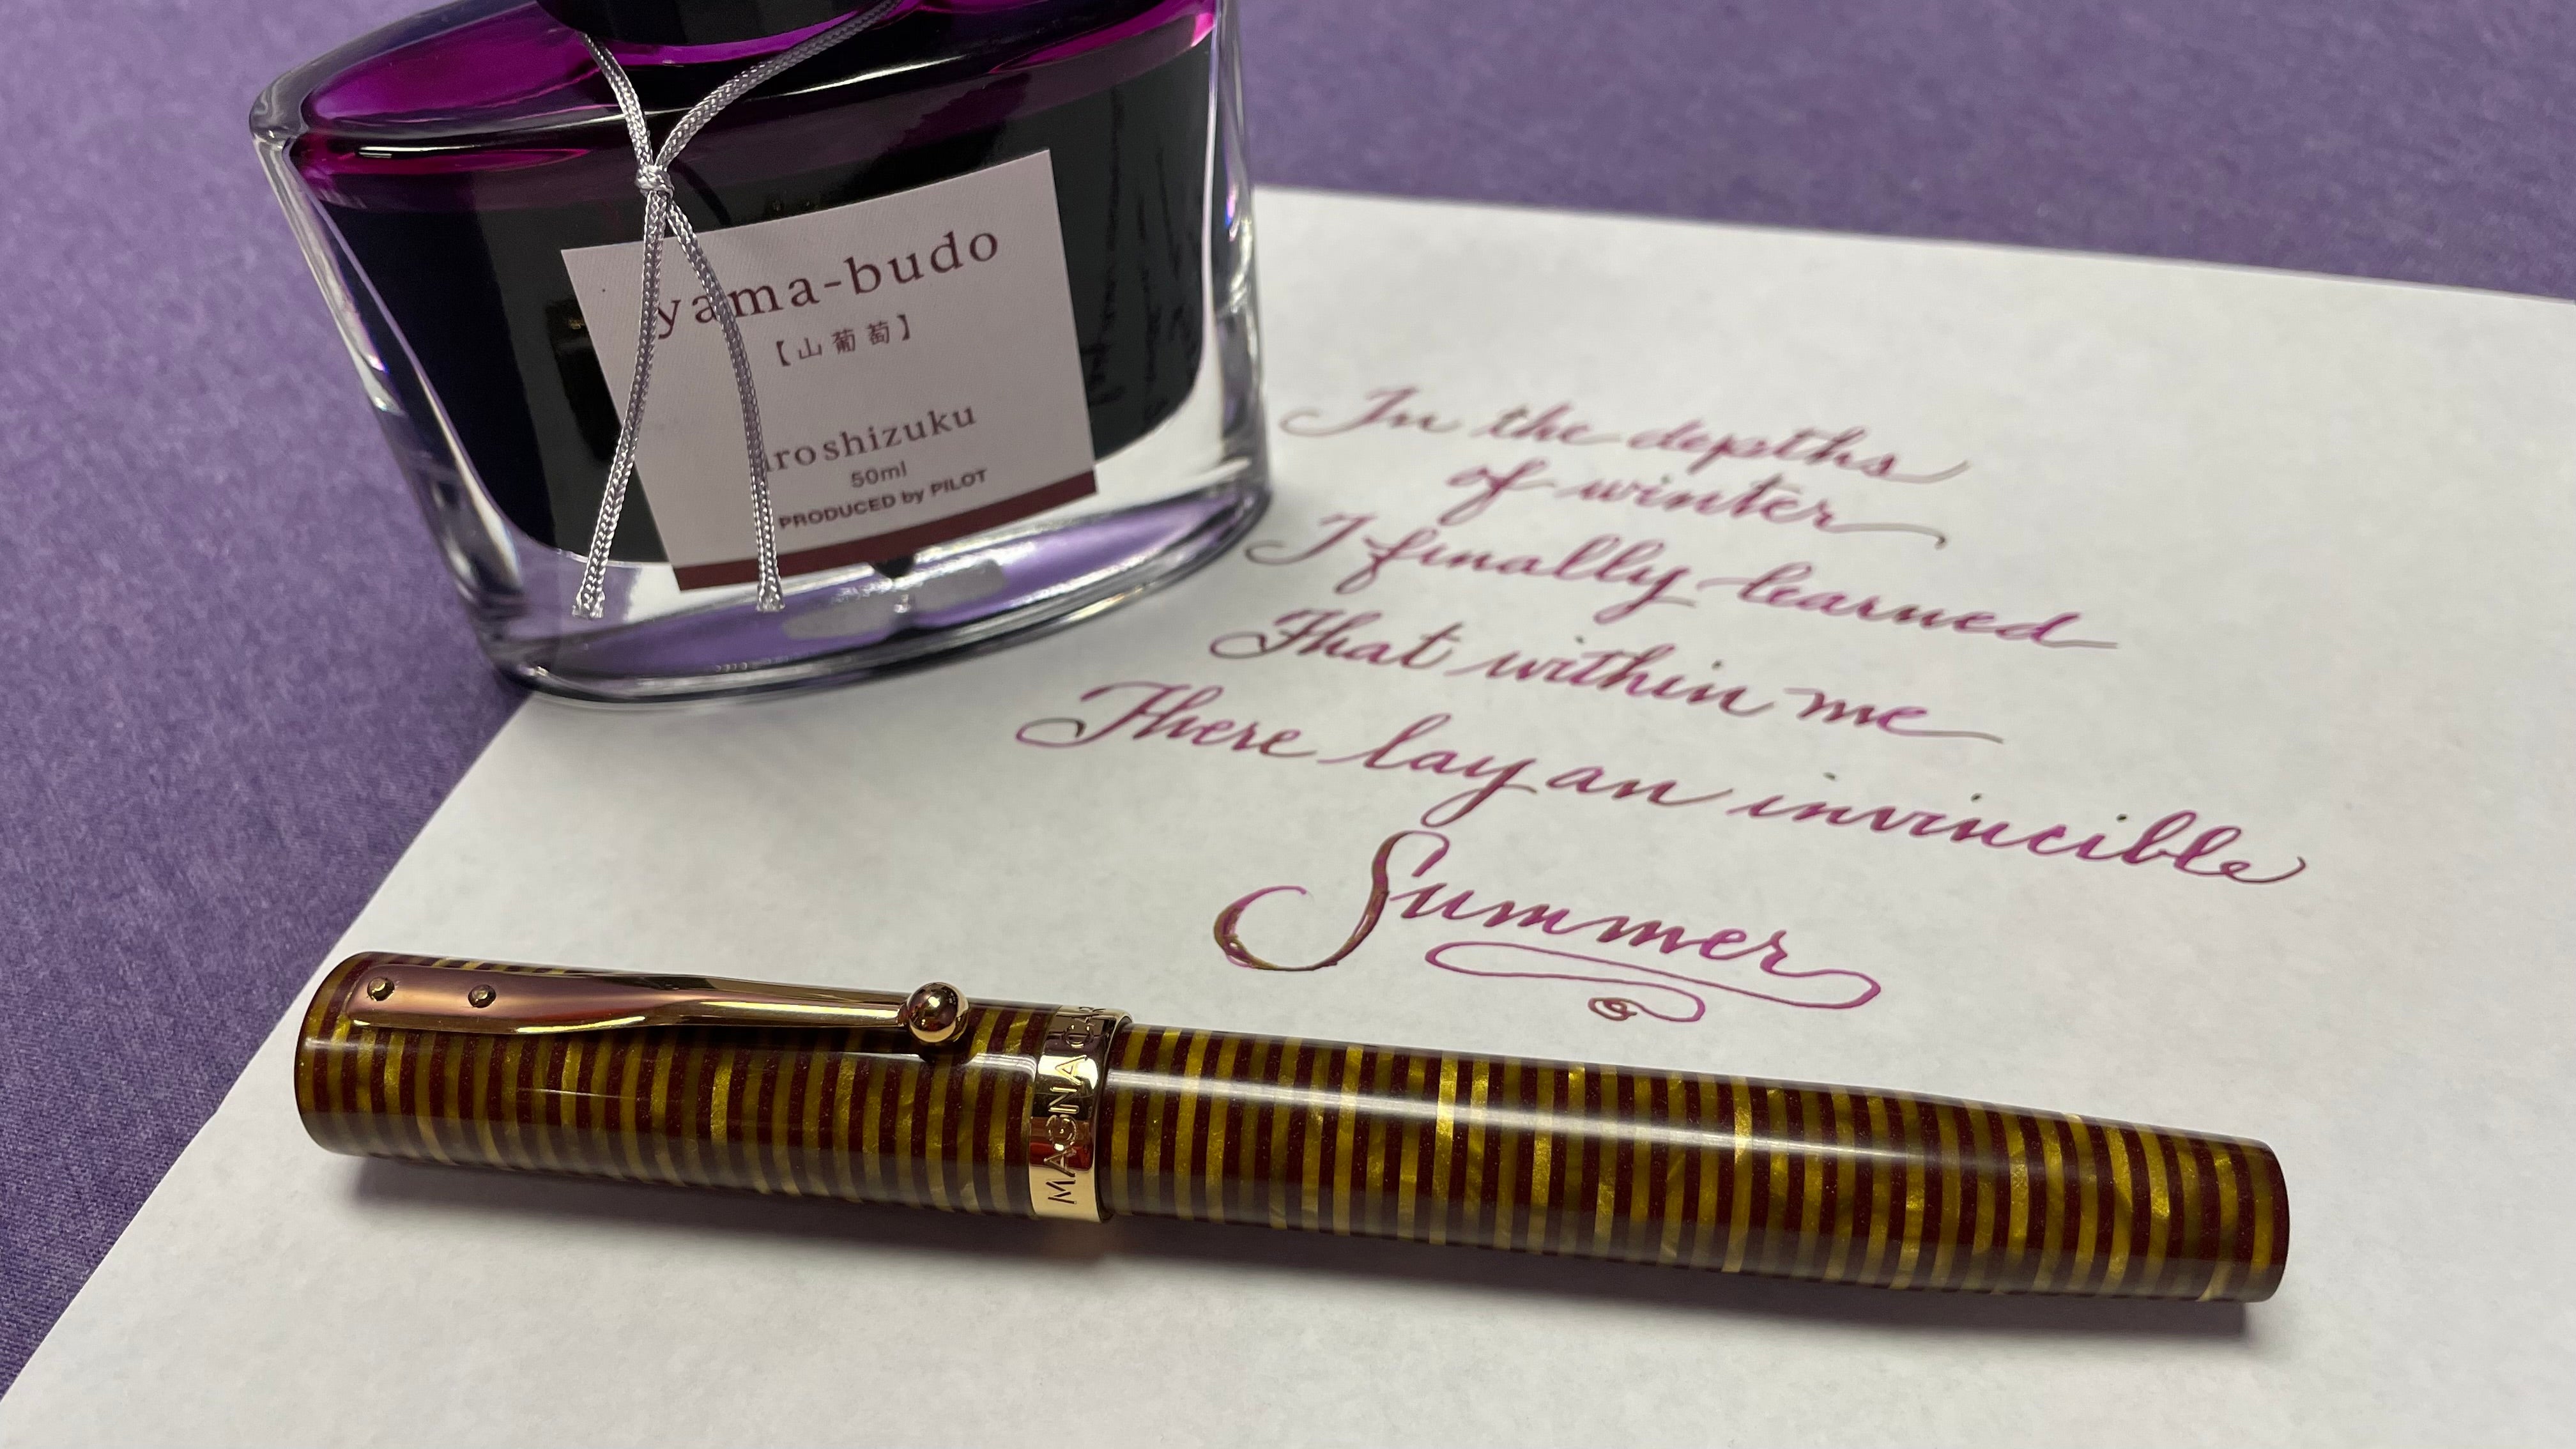 yama-budo
【山葡萄】
iroshizuku
50ml
PRODUCED by PILOT
In the depths
of winter
I finally learned
That within me
There lay an invincible
Summer
MAGNA CA